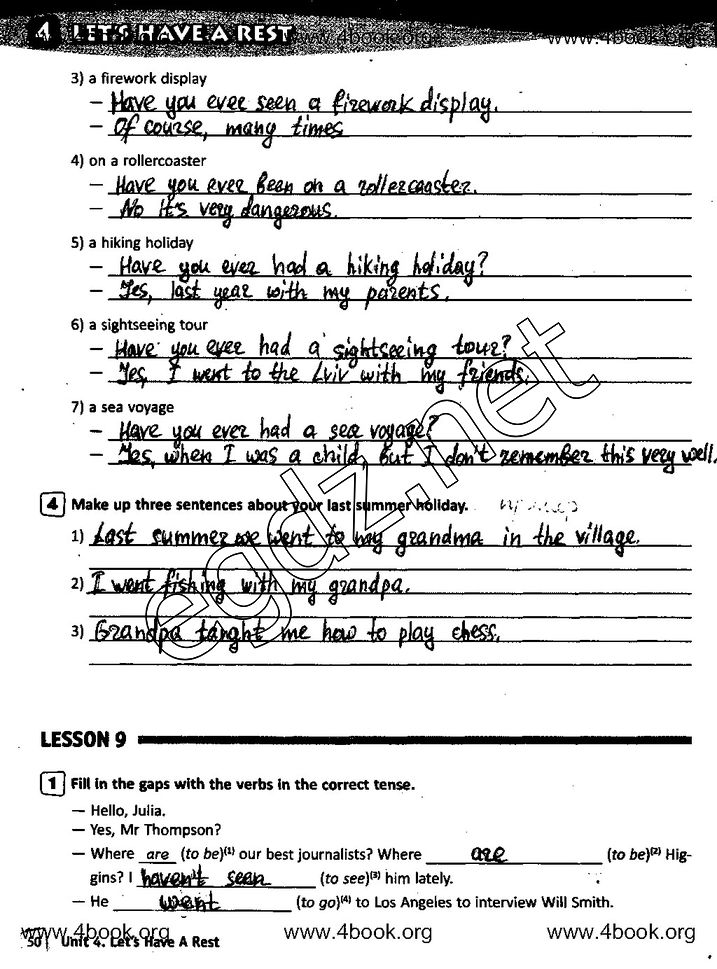 4 LET'S HAVE A REST
www.4book.org www.4book.org
3) a firework display
– Have you ever seen a firework display.
– Of course, many times
4) on a rollercoaster
– Have you ever been on a rollercoaster.
– No It's very dangerous.
5) a hiking holiday
– Have you ever had a hiking holiday?
– Yes, last year with my parents.
6) a sightseeing tour
– Have you ever had a sightseeing tour?
– Yes, I went to the Lviv with my friends.
7) a sea voyage
– Have you ever had a sea voyage?
– Yes, when I was a child, but I don't remember this very well.
egdz.net
4 Make up three sentences about your last summer holiday.
1) Last summer we went to my grandma in the village.
2) I went fishing with my grandpa.
3) Grandpa taught me how to play chess.
LESSON 9
1 Fill in the gaps with the verbs in the correct tense.
— Hello, Julia.
— Yes, Mr Thompson?
— Where are (to be)(1) our best journalists? Where are (to be)(2) Hig-
gins? I haven't seen (to see)(3) him lately.
— He went (to go)(4) to Los Angeles to interview Will Smith.
www.4book.org www.4book.org www.4book.org
50 Unit 4. Let's Have A Rest